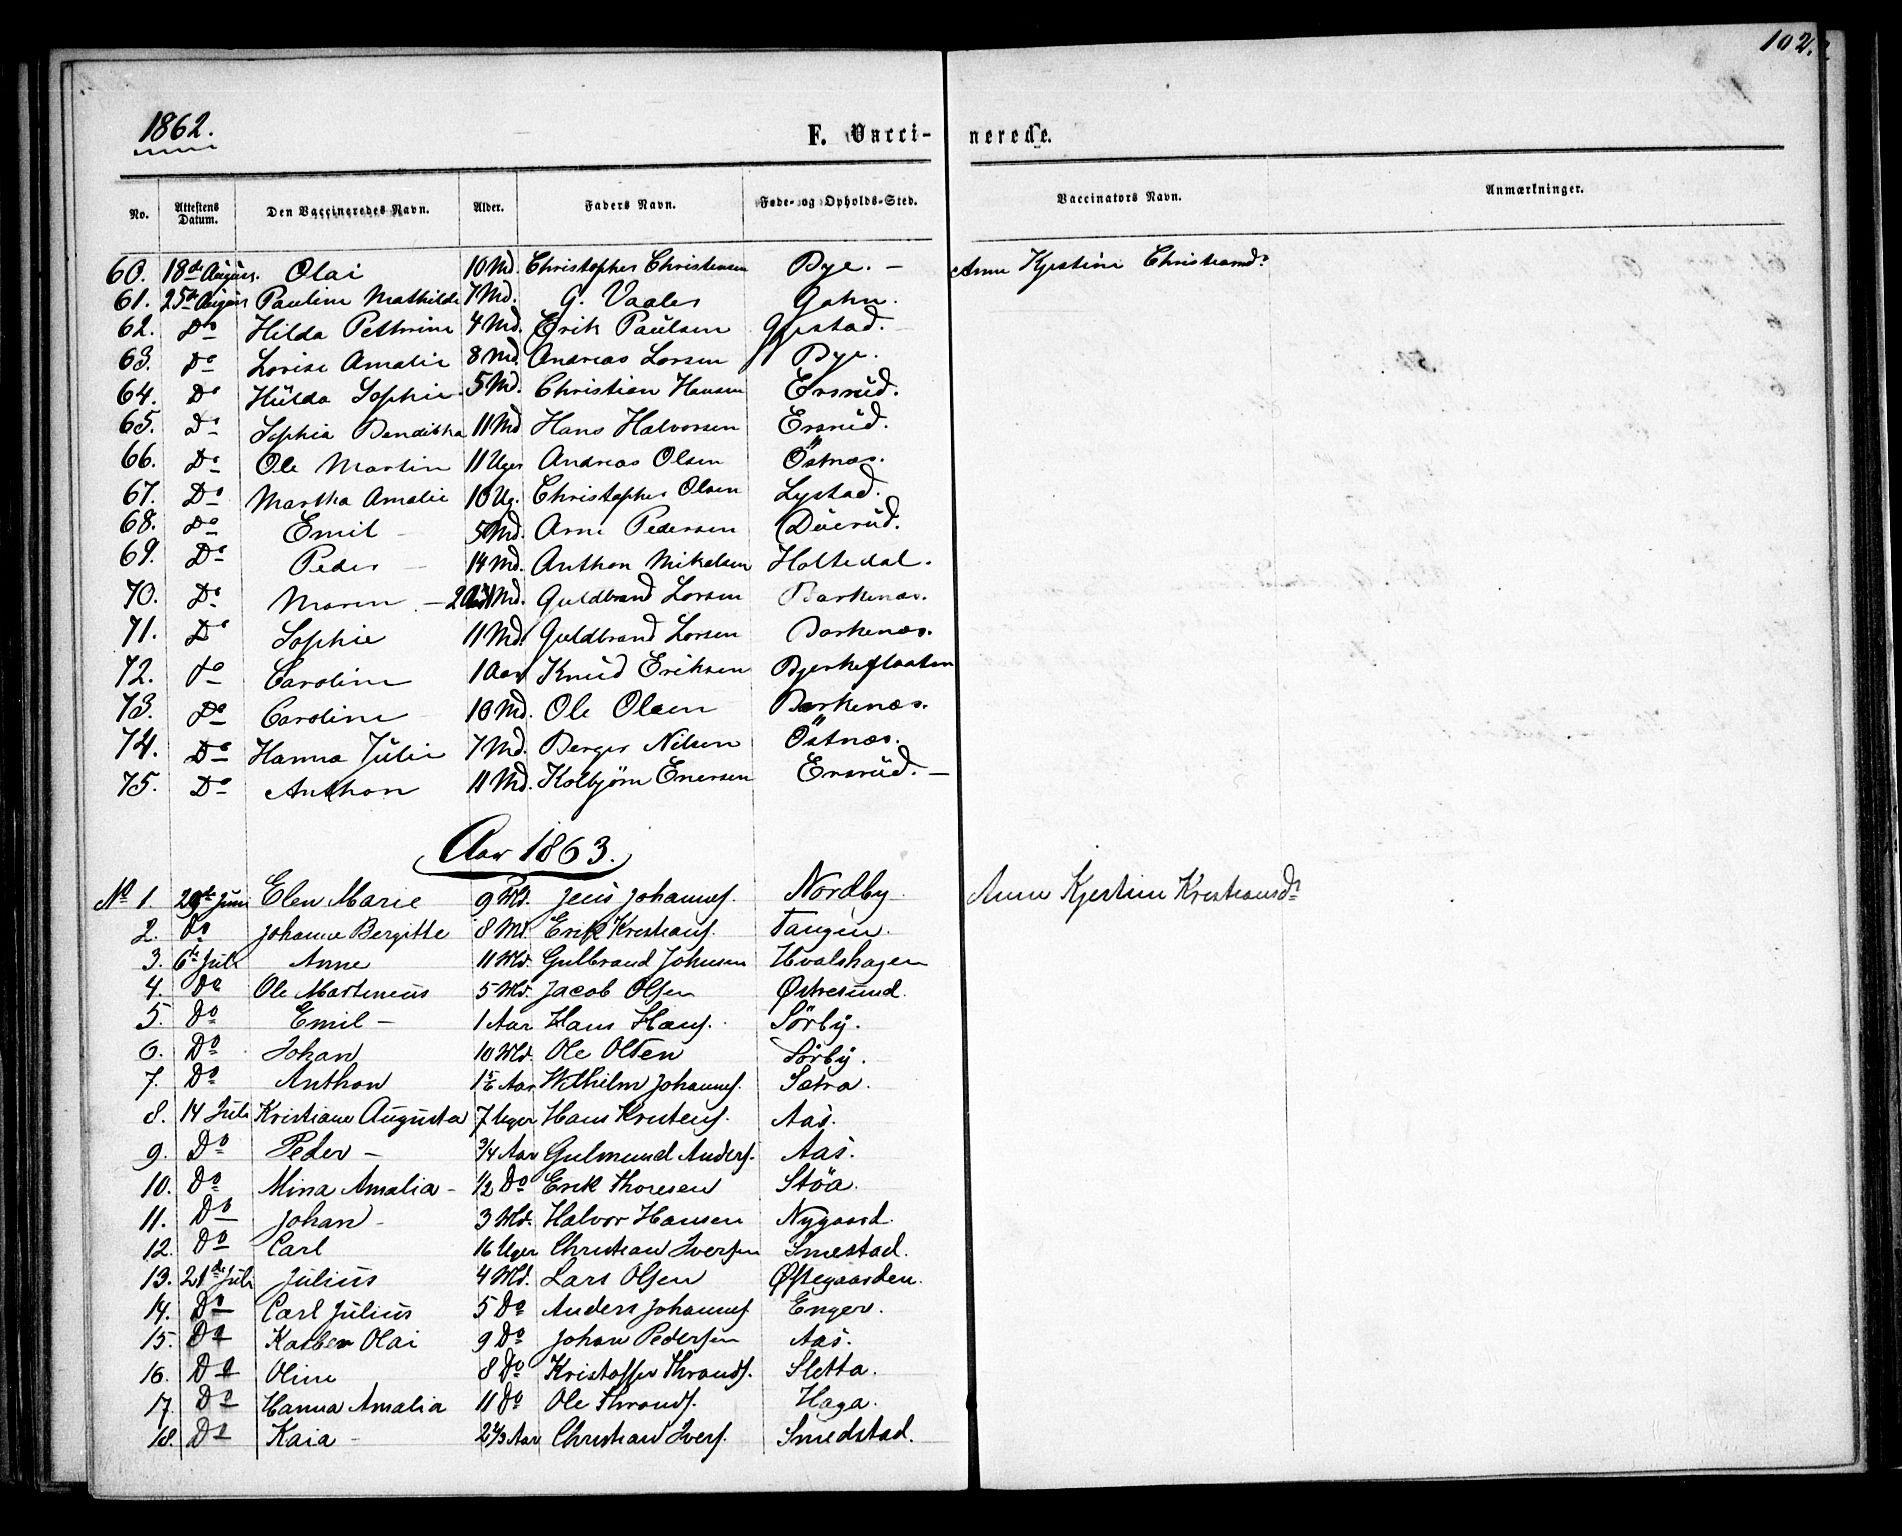 102.
1862.
F. Vacci- nerede.
No. Attestens Datum. Den Vaccineredes Navn. Alder. Faders Navn. Føde- og Opholds-Sted. Vaccinators Navn. Anmærkninger.
60. 18de Augus. Olai 10 Md. Christopher Christensen Bye. - Anne Kjestine Christiansd.
61. 25de Augus Pauline Mathilde 7 Md. G. Vaaler Gahn.
62. Do Hilda Pethrine 4 Md. Erik Paulsen Gystad.
63. Do Lovise Amalie 8 Md. Andreas Larsen Bye.
64. Do Hilda Sophie 5 Md. Christian Hansen Ersrud.
65. Do Sophia Bendikka 11 Md Hans Halvorsen Ersrud.
66. Do Ole Martin 11 Uger Andreas Olsen Östnæs.
67. Do Martha Amalie 10 Ug. Christopher Olsen Lystad.
68. Do Emil 5 Md. Arne Pedersen Duerud.
69. Do Peder 14 Md. Anthon Mikelsen Holtedal.
70. Do Maren - 2 Md. Guldbrand Larsen Barkenæs.
71. Do Sophie 11 Md. Guldbrand Larsen Barkenæs.
72. Do Caroline 1 Aar Knud Eriksen Bjerkeflaaten
73. Do Caroline 10 Md. Ole Olsen Barkenæs.
74. Do Hanna Julie 7 Md. Berger Nilsen Östnæs.
75. Do Anthon 11 Md. Kolbjørn Enersen Ersrud. -
Aar 1863.
No 1. 29de Juni Elen Marie 9 Md. Jens Johannes. Nordby Anne Kjerstine Kristiansd.
2. Do Johanne Bergitte 8 Md. Erik Kristians. Tangen.
3. 6te Juli Anne 11 Md. Gulbrand Johnsen Hvalshagen
4. Do Ole Martinius 5 Md. Jacob Olsen Østresund.
5. Do Emil - 1 Aar Hans Hans. Sörby.
6. Do Johan 10 Md. Ole Olsen Sörby.
7. Do Anthon 1 5/6 Aar Wilhelm Johannes. Sætra.
8. 14 Juli Kristiane Augusta 7 Uger Hans Kristens. Aas.
9. Do Peder - 3/4 Aar Gulmund Anders. Aas.
10. Do Mina Amalia - 1/2 Do Erik Thoresen Stöa.
11. Do Johan - 3 Md. Halvor Hansen Nygaard.
12. Do Carl 16 Uger Christian Iversen Smestad.
13. 21de Juli Julius 4 Md. Lars Olsen Østegaarden.
14. Do Carl Julius 5 Do Anders Johannes. Enger.
15. Do Olai 9 Do Johan Pedersen Aas.
16. Do Oline 8 Do Kristoffer Thronds. Sletta.
17. Do Hanna Amalia 11 Do Ole Thronds. Haga.
18. Do Kaia - 2 1/3 Aar Christian Ivers. Smedstad.